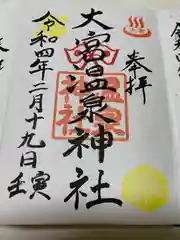 奉拝
大宮温泉神社
温泉
神社
令和四年二月十九日
壬寅